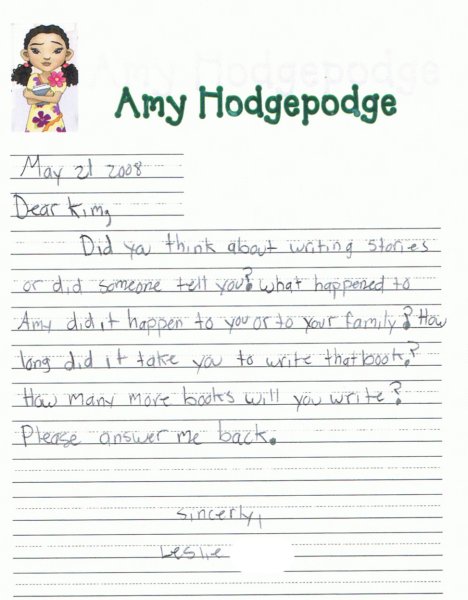 Amy Hodgepodge
May 21 2008
Dear Kim,
Did you think about writing stories
or did someone tell you? what happened to
Amy did it happen to you or to your family? How
long did it take you to write that book?
How many more books will you write?
Please answer me back.
sincerly,
Leslie